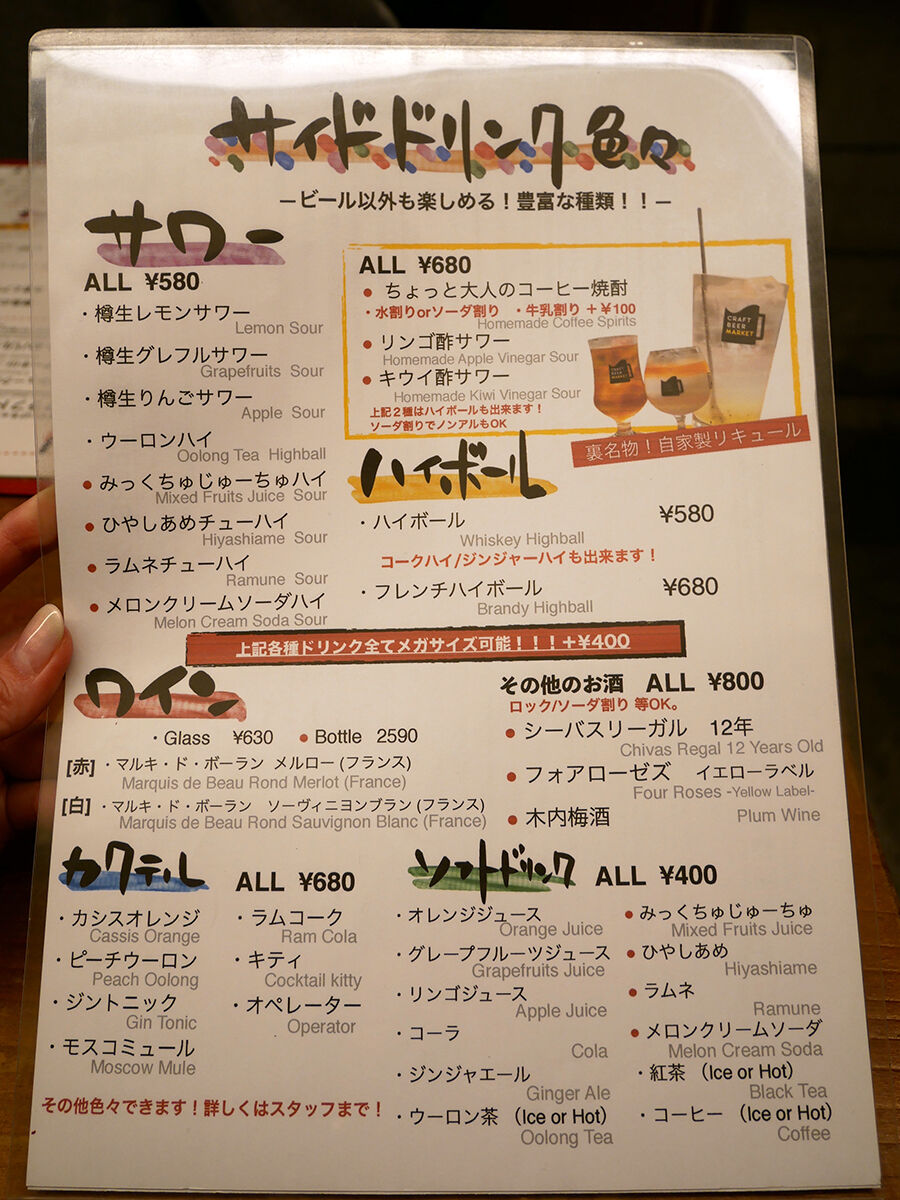 サイドドリンク色々
ービール以外も楽しめる！豊富な種類！！ー
サワー
ALL ¥580
・樽生レモンサワー
Lemon Sour
・樽生グレフルサワー
Grapefruits Sour
・樽生りんごサワー
Apple Sour
・ウーロンハイ
Oolong Tea Highball
● みっくちゅじゅーちゅハイ
Mixed Fruits Juice Sour
● ひやしあめチューハイ
Hiyashiame Sour
● ラムネチューハイ
Ramune Sour
● メロンクリームソーダハイ
Melon Cream Soda Sour
ALL ¥680
● ちょっと大人のコーヒー焼酎
・水割りorソーダ割り ・牛乳割り＋¥100
Homemade Coffee Spirits
● リンゴ酢サワー
Homemade Apple Vinegar Sour
● キウイ酢サワー
Homemade Kiwi Vinegar Sour
上記２種はハイボールも出来ます！
ソーダ割りでノンアルもOK
CRAFT BEER MARKET
CRAFT BEER MARKET
裏名物！自家製リキュール
ハイボール
・ハイボール ¥580
Whiskey Highball
コークハイ/ジンジャーハイも出来ます！
・フレンチハイボール ¥680
Brandy Highball
上記各種ドリンク全てメガサイズ可能！！！＋¥400
ワイン
・Glass ¥630 ● Bottle 2590
[赤]・マルキ・ド・ボーラン メルロー (フランス)
Marquis de Beau Rond Merlot (France)
[白]・マルキ・ド・ボーラン ソーヴィニヨンブラン (フランス)
Marquis de Beau Rond Sauvignon Blanc (France)
その他のお酒 ALL ¥800
ロック/ソーダ割り 等OK。
● シーバスリーガル 12年
Chivas Regal 12 Years Old
● フォアローゼズ イエローラベル
Four Roses -Yellow Label-
● 木内梅酒 Plum Wine
カクテル ALL ¥680
・カシスオレンジ
Cassis Orange
・ピーチウーロン
Peach Oolong
・ジントニック
Gin Tonic
・モスコミュール
Moscow Mule
・ラムコーク
Ram Cola
・キティ
Cocktail kitty
・オペレーター
Operator
その他色々できます！詳しくはスタッフまで！
ソフトドリンク ALL ¥400
・オレンジジュース
Orange Juice
・グレープフルーツジュース
Grapefruits Juice
・リンゴジュース
Apple Juice
・コーラ
Cola
・ジンジャエール
Ginger Ale
・ウーロン茶 (Ice or Hot)
Oolong Tea
● みっくちゅじゅーちゅ
Mixed Fruits Juice
● ひやしあめ
Hiyashiame
● ラムネ
Ramune
● メロンクリームソーダ
Melon Cream Soda
・紅茶 (Ice or Hot)
Black Tea
・コーヒー (Ice or Hot)
Coffee